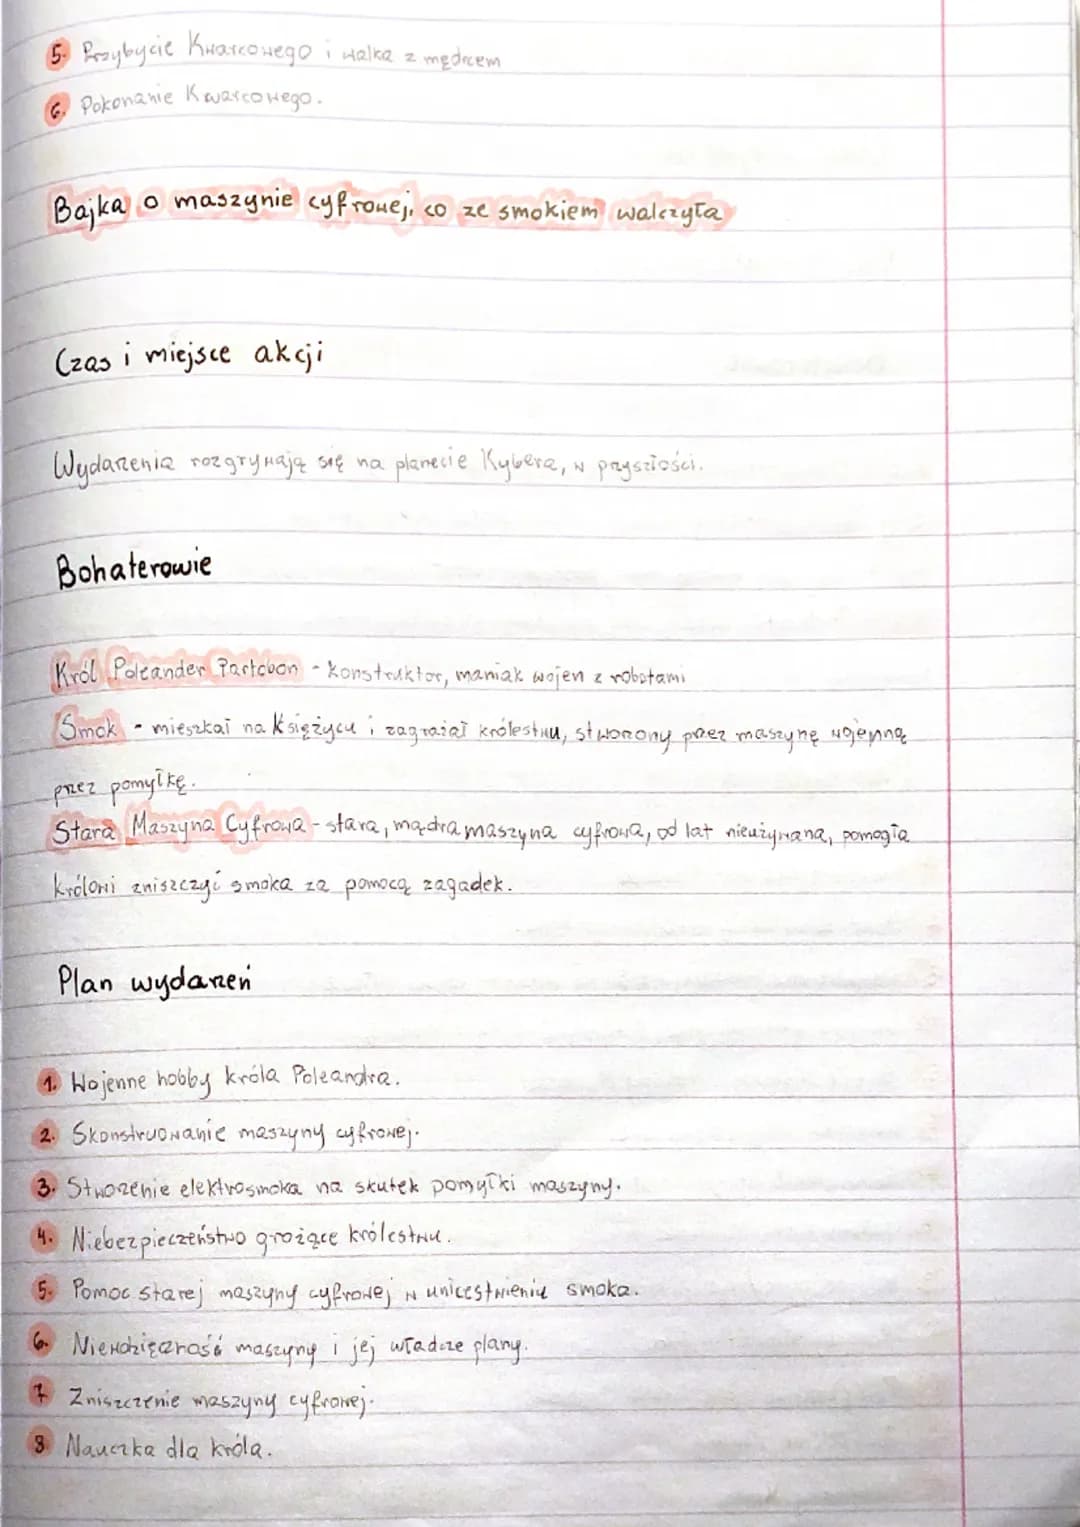 5. Przybycie Kwarcowego i walka z mędrcem
6. Pokonanie Kwarcowego.
Bajka o maszynie cyfrowej, co ze smokiem walczyła
Czas i miejsce akcji
Wydarzenia rozgrywają się na planecie Kybera, w przyszłości.
Bohaterowie
Król Poleander Partobon - konstruktor, maniak wojen z robotami
Smok - mieszkał na Księżycu i zagrażał królestwu, stworzony przez maszynę wojenną
przez pomyłkę.
Stara Maszyna Cyfrowa - stara, mądra maszyna cyfrowa, od lat nieużywana, pomogła
królowi zniszczyć smoka za pomocą zagadek.
Plan wydarzeń
1. Wojenne hobby króla Poleandra.
2. Skonstruowanie maszyny cyfrowej.
3. Stworzenie elektrosmoka na skutek pomyłki maszyny.
4. Niebezpieczeństwo grożące królestwu.
5. Pomoc starej maszyny cyfrowej w unicestwieniu smoka.
6. Niewdzięczność maszyny i jej władcze plany.
7 Zniszczenie maszyny cyfrowej.
8. Nauczka dla króla.